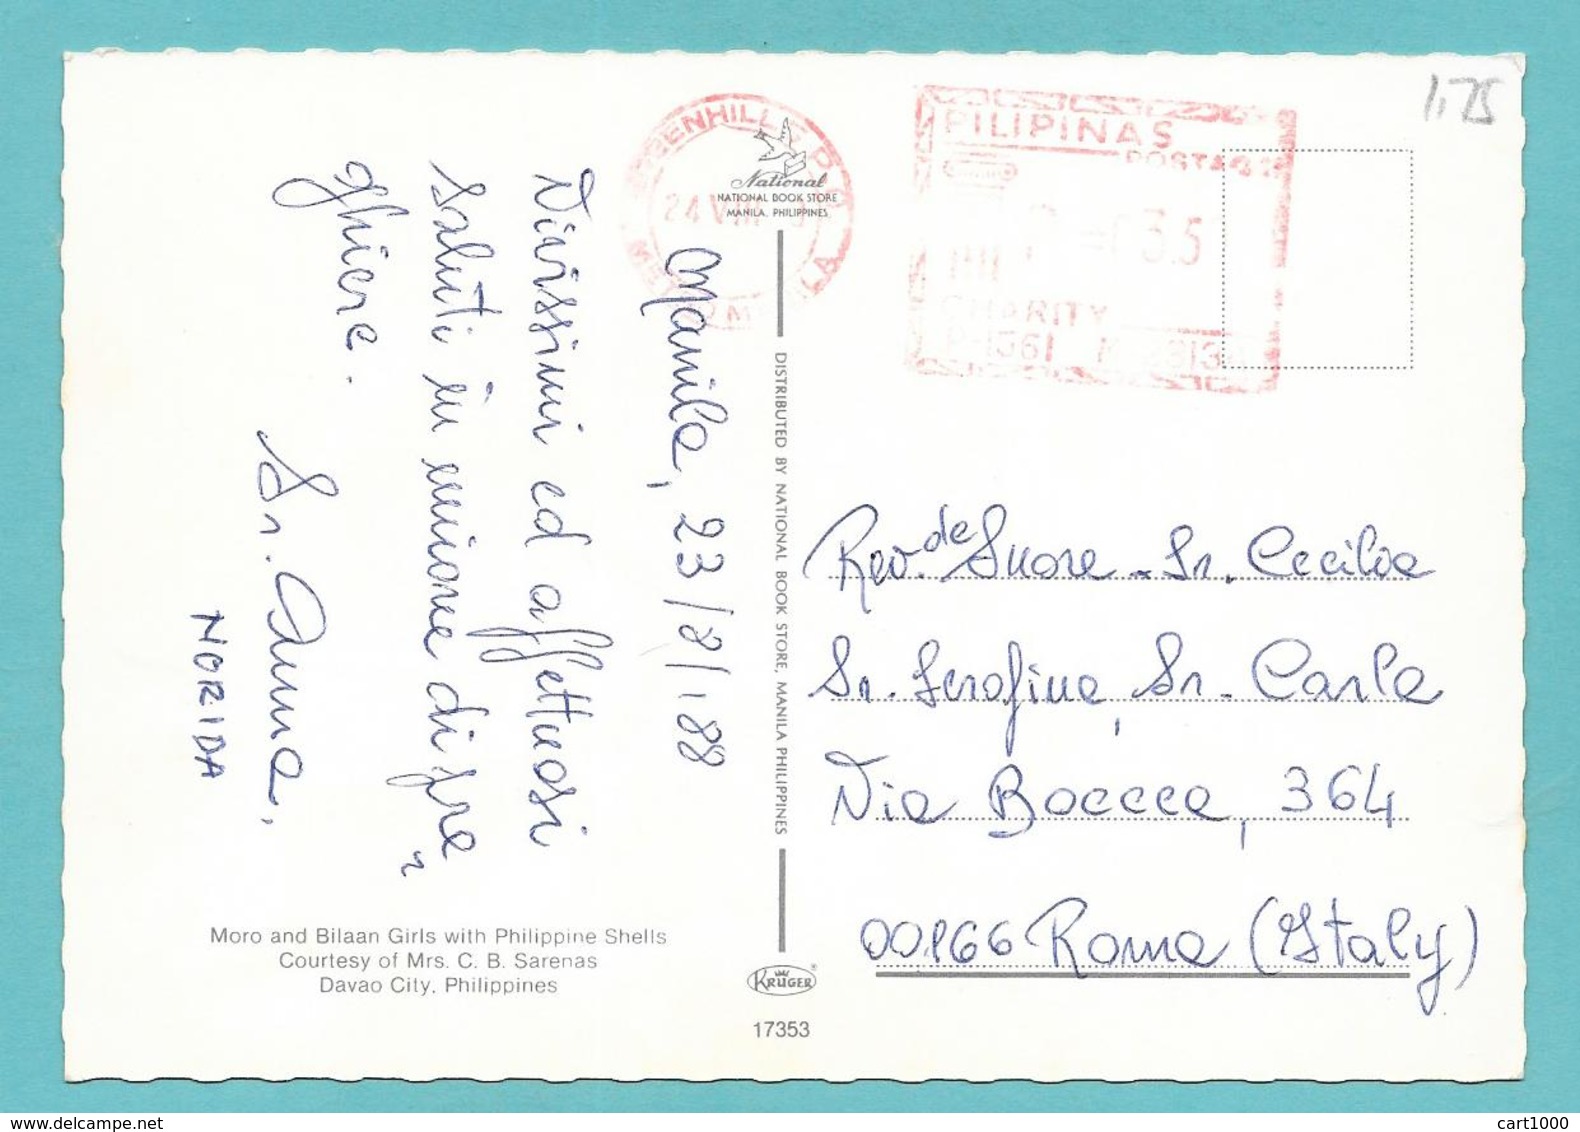 Manila, 23/8/'88
Vivissimi ed affettuosi
saluti in unione di pre„
ghiere.
Sr. Anna,
NORIDA
Moro and Bilaan Girls with Philippine Shells
Courtesy of Mrs. C. B. Sarenas
Davao City, Philippines
National
NATIONAL BOOK STORE
MANILA, PHILIPPINES
DISTRIBUTED BY NATIONAL BOOK STORE, MANILA PHILIPPINES
KRÜGER®
17353
24 VIII
METRO MANILA
PILIPINAS
POSTAGE
CHARITY
1,75
Rev.de Suore - Sr. Cecilia
Sr. Serafina, Sr. Carla
Via Boccea, 364
00166 Roma (Italy)
cart1000